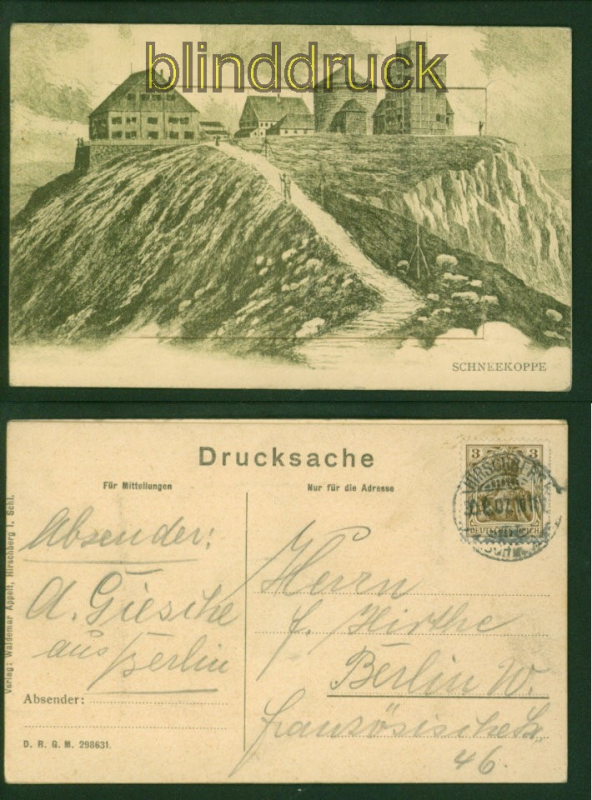 blinddruck
SCHNEEKOPPE
Drucksache
Für Mitteilungen
Nur für die Adresse
3 3
HIRSCHBERG
DEUTSCHES REICH
Absender:
A. Giesche
aus Berlin
Absender:
Herrn
f. Hirthe
Berlin W.
Französische Str.
46.
Verlag: Waldemar Appelt, Hirschberg i. Schl.
D. R. G. M. 298631.